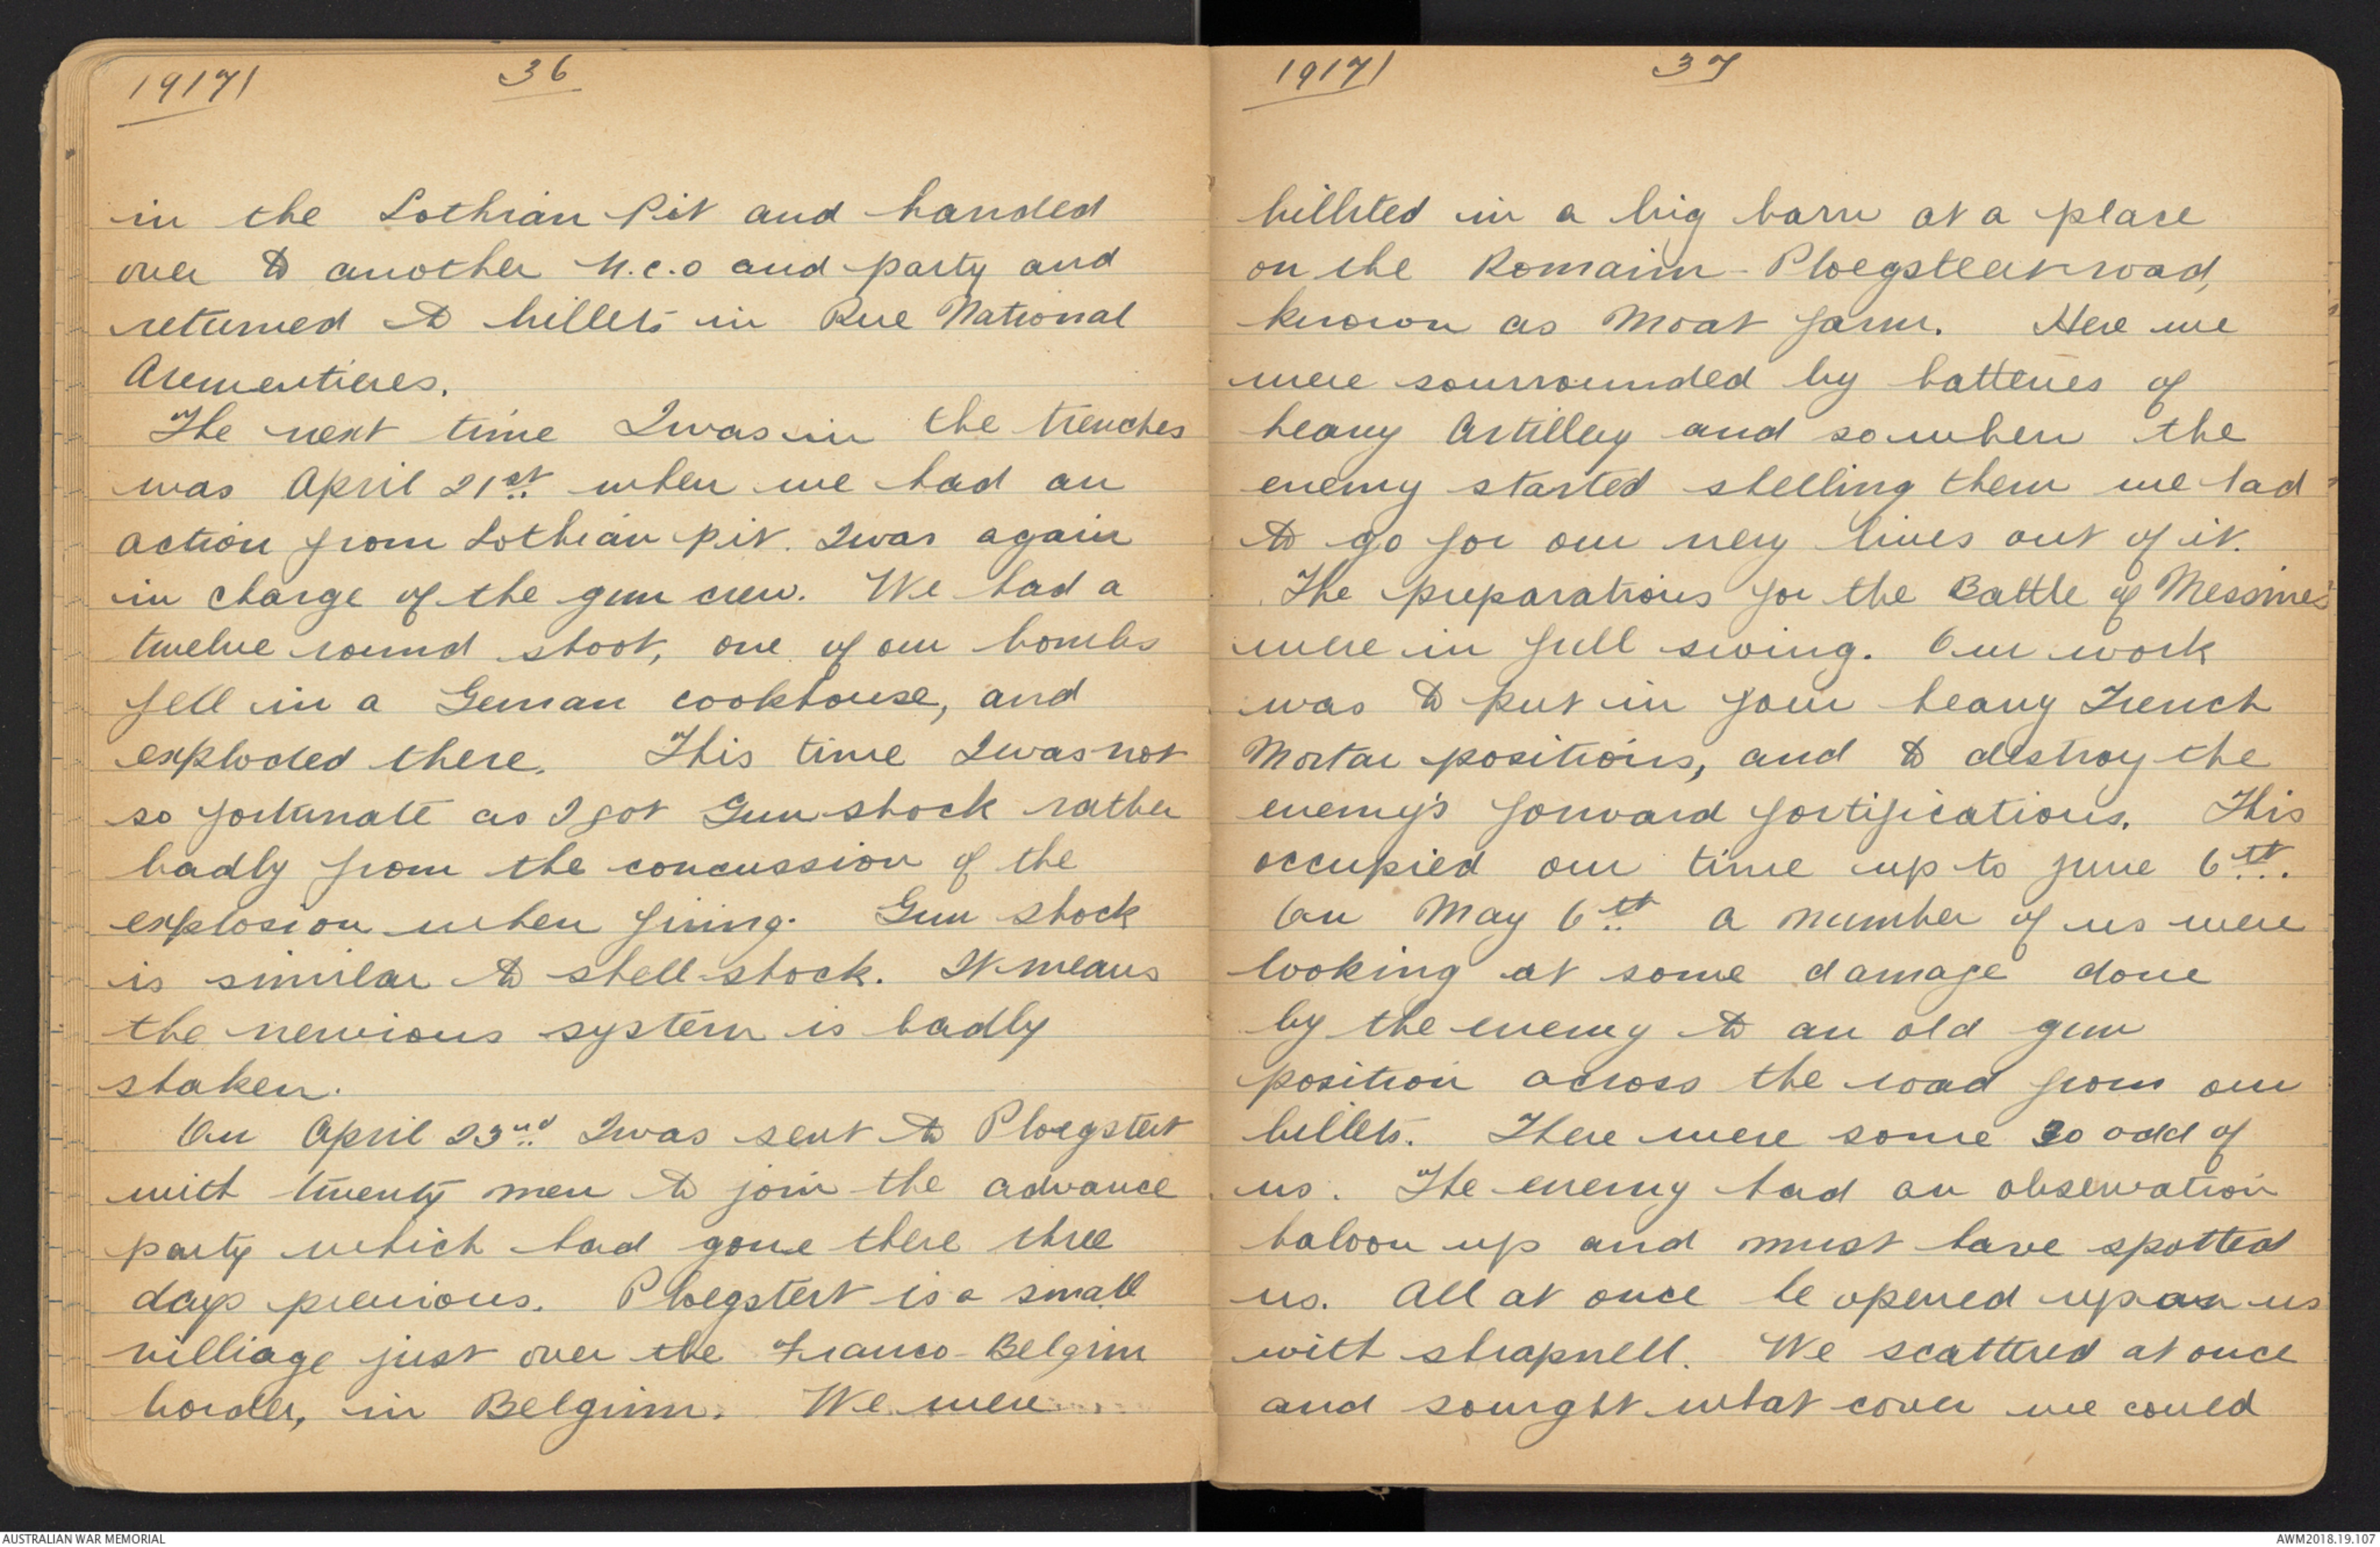 1917/ 36
in the Lothian Pit and handed
over to another N.c.o and party and
returned to billets in Rue National
Arementieres.
The next time I was in the trenches
was April 21st when we had an
action from Lothian pit. I was again
in charge of the gun crew. We had a
twelve round shoot, one of our bombs
fell in a German cookhouse, and
exploded there. This time I was not
so fortunate as I got Gun shock rather
badly from the concussion of the
explosion when firing. Gun shock
is similar to shell-shock. It means
the nervious system is badly
shaken.
On April 23rd I was sent to Ploegstert
with twenty men to join the advance
party which had gone there three
days previous. Ploegstert is a small
villiage just over the Franco-Belgim
border, in Belgium. We were
1917/ 37
billited in a big barn at a place
on the Romarin-Ploegsteert road,
known as Moat farm. Here we
were sourrounded by batteries of
heavy Artilley and so when the
enemy started shelling them we had
to go for our very lives out of it.
The preparations for the Battle of Messines
were in full swing. Our work
was to put in four heavy Trench
Mortar positions, and to destroy the
enemy's forward fortifications. This
occupied our time up to June 6th.
On May 6th a number of us were
looking at some damage done
by the enemy to an old gun
position across the road from our
billets. There were some 30 odd of
us. The enemy had an observation
baloon up and must have spotted
us. All at once he opened up on us
with shrapnell. We scattered at once
and sought what cover we could
AUSTRALIAN WAR MEMORIAL
AWM2018.19.107